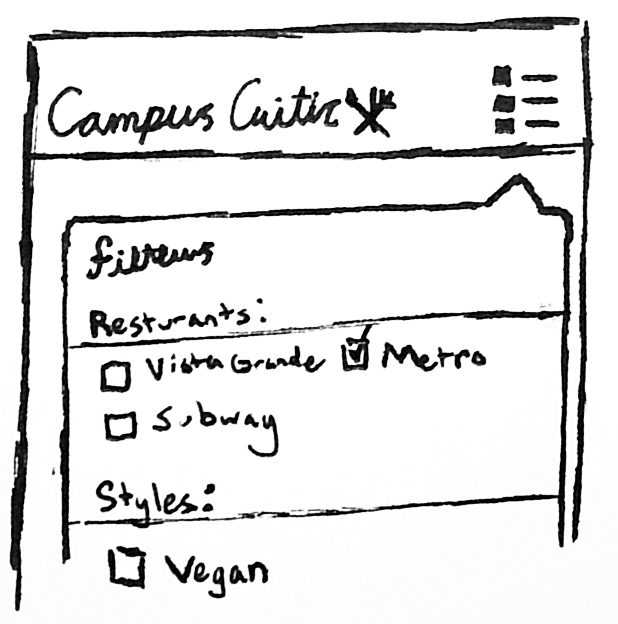 Campus Critic
filters
Resturants:
Vista Grande Metro
Subway
Styles:
Vegan